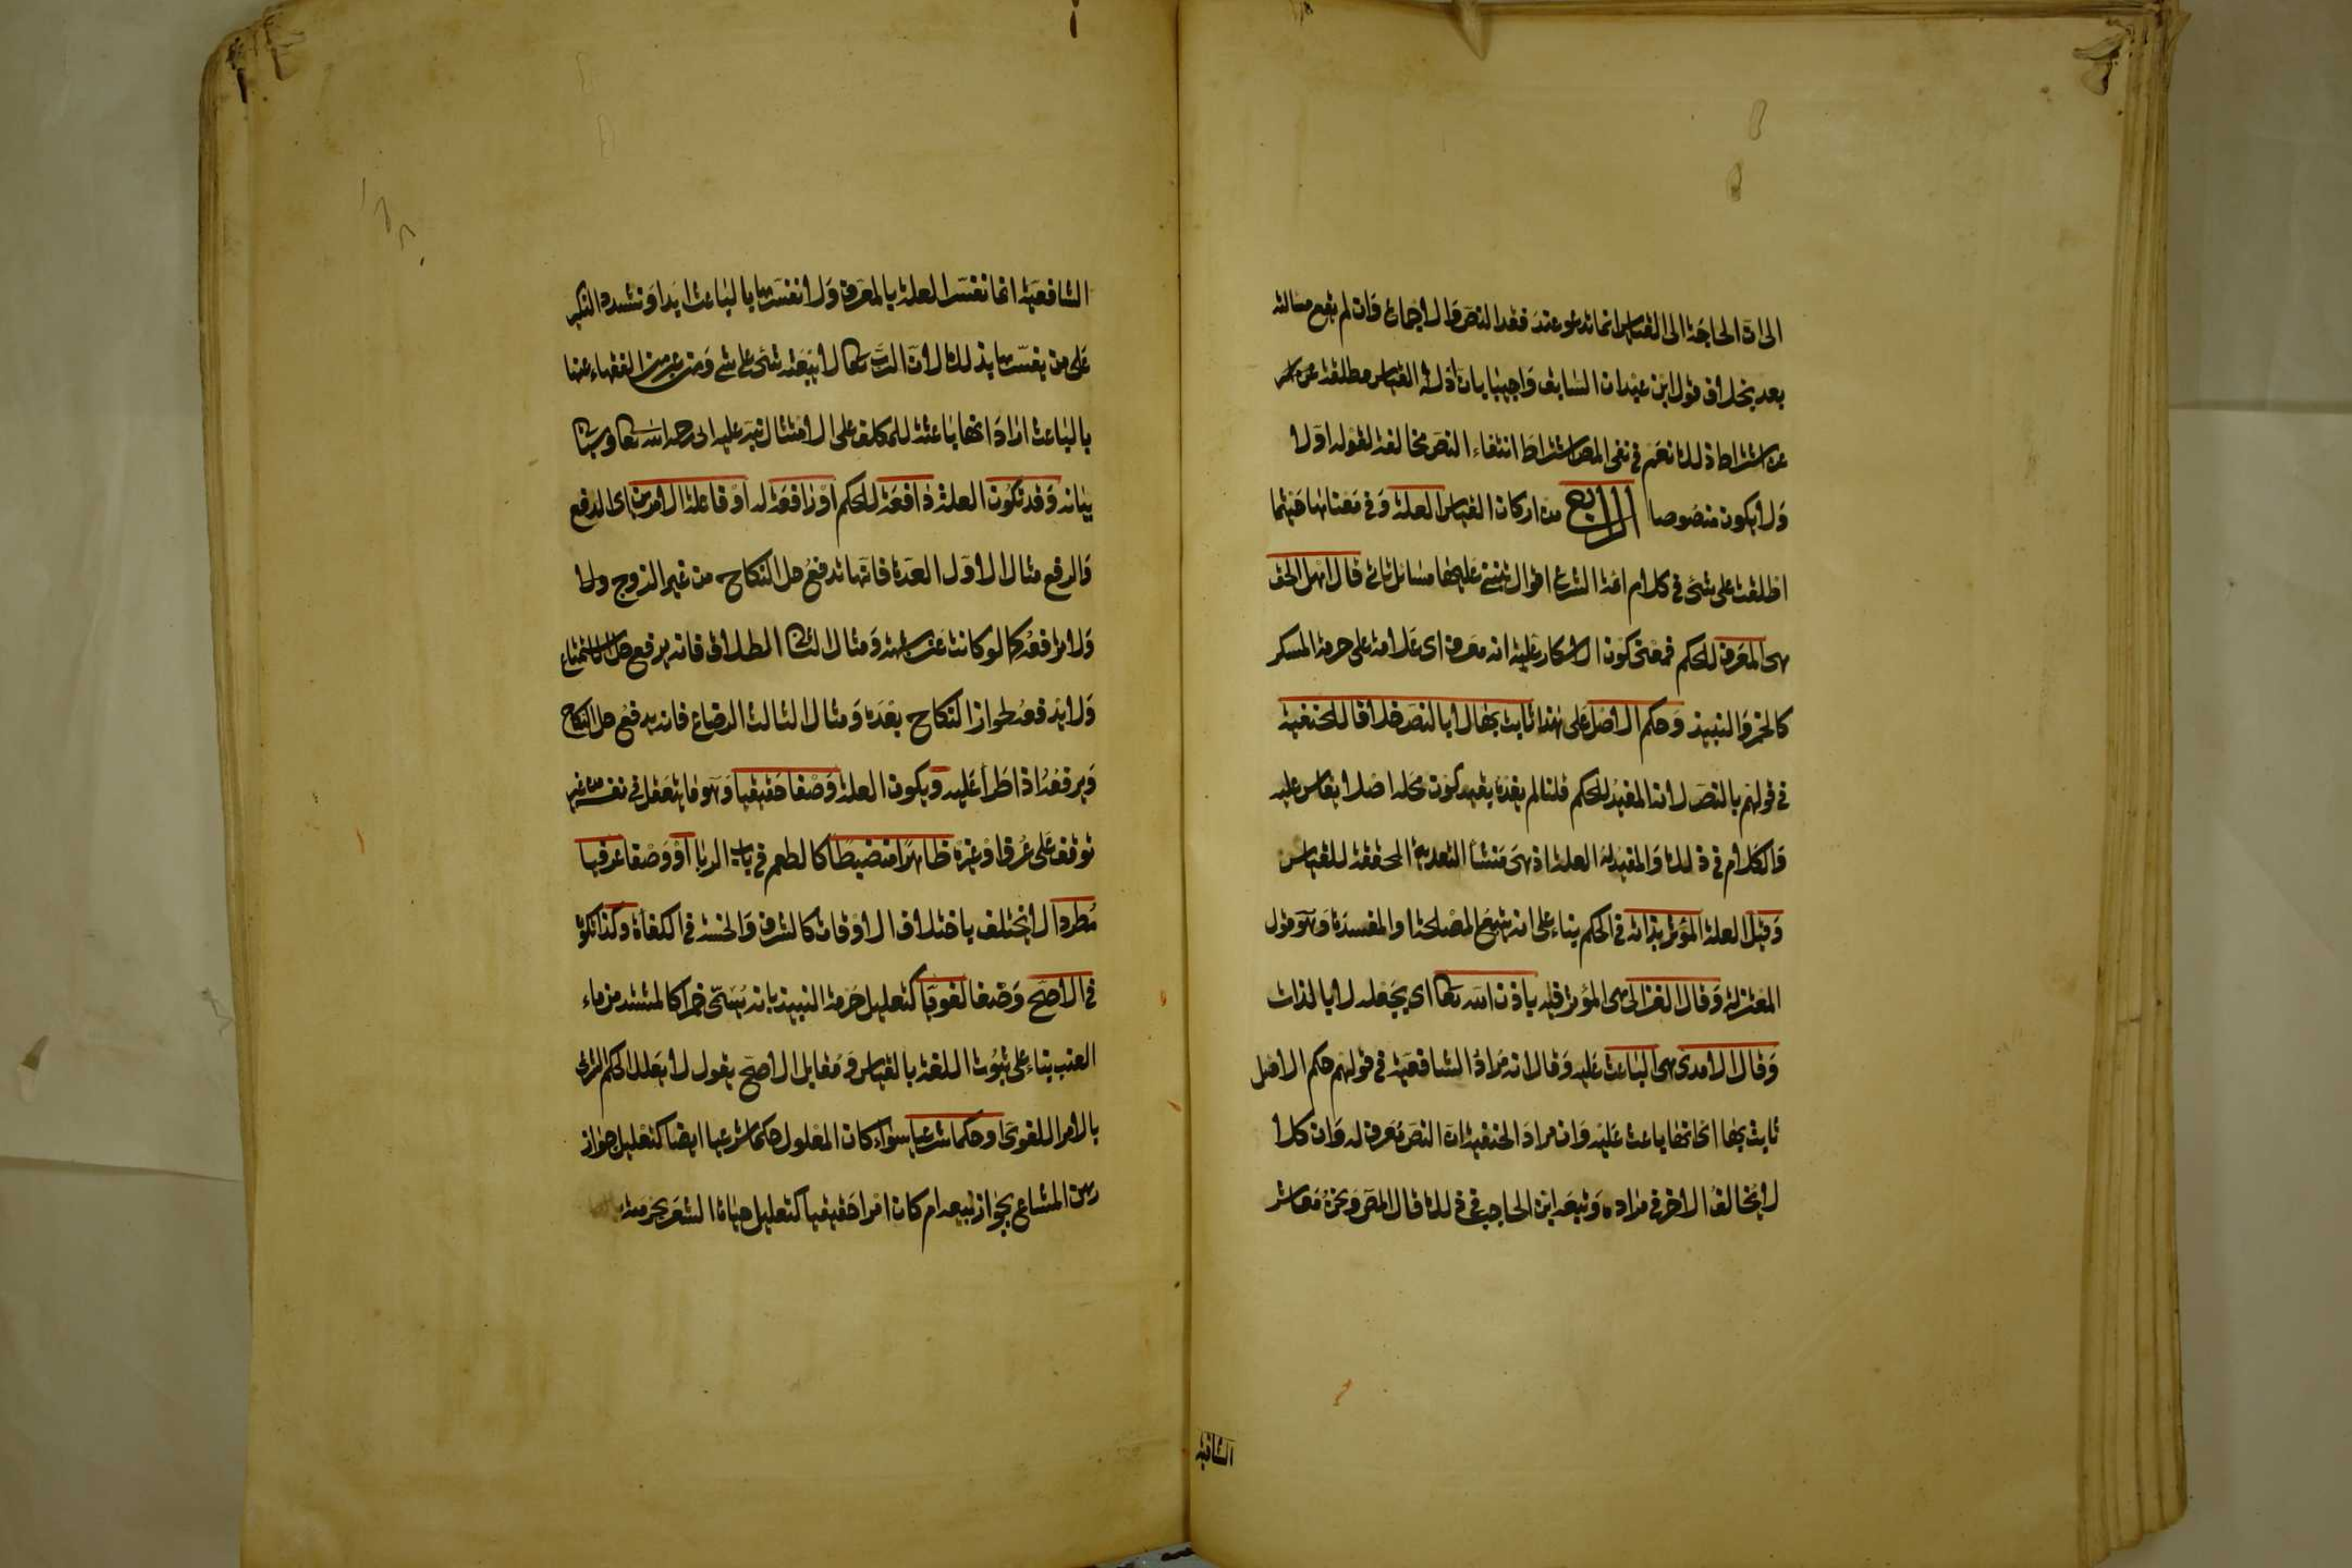 الى ان الحاجة الى القياس انما تدعو عند فقد النص والاجماع وان لم يقع مسالة
بعد بخلاف قول ابن عبدان السابق واجيبا بان ادلة القياس مطلقة عن
عن اشتراط ذلك نعم في نفى المص اشتراط انتفاء النص مخالفة لقوله اولا
ولا يكون منصوصا الرابع من اركان القياس العلة وفي معناها حيثما
اطلقت على شئ في كلام ائمة الشرع اقوال ينبني عليها مسائل تاتي قال اهل الحق
هى المعرف للحكم فمعنى كون الاسكار علية انه معرف اى علامة على حرمة المسكر
كالخمر والنبيذ وحكم الاصل على هذا ثابت بها لا بالنص خلافا للحنفية
في قولهم بالنص لانه المفيد للحكم قلنا لم يفده بقيد كون محله اصلا يقاس عليه
والكلام في ذلك والمفيد له العلة اذ هى منشا التعدية المحققة للقياس
وقيل العلة المؤثر بذاته في الحكم بناء على انه يتبع المصلحة او المفسدة وهو قول
المعتزلة وقال الغزالى هى المؤثر فيه باذن الله تعا اى بجعله لا بالذات
وقال الامدى هى الباعث عليه وقال انه مراد الشافعية في قولهم حكم الاصل
ثابت بها اى انها باعث عليه وان مراد الحنفية ان النص معرف له وان كلا
لا يخالف الاخر في مراده وتبعه ابن الحاجب في ذلك قال المص ونحن معاشر
الشافعية
الشافعية انما نفسر العلة بالمعرف ولا نفسرها بالباعث ابدا ونشدد النكير
على من يفسرها بذلك لان الرب تعا لا يبعثه شئ على شئ ومن عبر من الفقهاء عنها
بالباعث اراد انها باعثة للمكلف على الامتثال نبه عليه ابى رحمه الله تعا وسياتي
بيانه وقد تكون العلة دافعة للحكم او رافعة له او فاعلة الامرين اى الدفع
والرفع مثال الاول العدة فانها تدفع حل النكاح من غير الزوج ولا
ولا ترفعه كما لو كانت عن شبهة ومثال الثا الطلاق فانه يرفع حل الاستمتاع
ولا يدفعه لجواز النكاح بعده ومثال الثالث الرضاع فانه يدفع حل النكاح
ويرفعه اذا طرا عليه ويكون العلة وصفا حقيقيا وهو ما يتعقل في نفسه من غير
توقف على عرف او غيره ظاهرا منضبطا كالطعم في باب الربا او وصفا عرفيا
مطردا لا يختلف باختلاف الاوقات كالشرف والخسة في الكفاة وكذا تكون
في الاصح وصفا لغويا كتعليل حرمة النبيذ بانه يسمى خمرا كالمشتد من ماء
العنب بناء على ثبوت اللغة بالقياس ومقابل الاصح يقول لا يعلل الحكم الشرعى
بالامر اللغوى او حكما شرعيا سواء كان المعلول حكما شرعيا ايضا كتعليل جواز
رهن المشاع بجواز بيعه ام كان امرا حقيقيا كتعليل حياة الشعر بحرمته